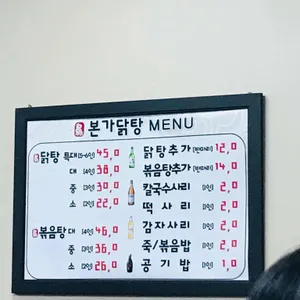 본가닭탕 MENU
닭탕 특대 [5~6인] 45,0
대 [4인] 38,0
중 [3인] 30,0
소 [2인] 22,0
볶음탕 대 [4인] 46,0
중 [3인] 36,0
소 [2인] 26,0
닭탕추가 [반마리] 12,0
볶음탕추가 [반마리] 14,0
칼국수사리 2,0
떡사리 2,0
감자사리 2,0
죽/볶음밥 2,0
공기밥 1,0